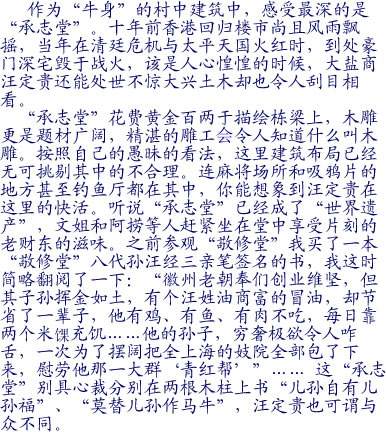 作为“牛身”的村中建筑中，感受最深的是
“承志堂”。十年前香港回归楼市尚且风雨飘
摇，当年在清廷危机与太平天国火红时，到处豪
门深宅毁于战火，该是人心惶惶的时候，大盐商
汪定贵还能处世不惊大兴土木却也令人刮目相
看。
“承志堂”花费黄金百两于描绘栋梁上，木雕
更是题材广阔，精湛的雕工会令人知道什么叫木
雕。按照自己的愚昧的看法，这里建筑布局已经
无可挑剔其中的不合理。连麻将场所和吸鸦片的
地方甚至钓鱼厅都在其中，你能想象到汪定贵在
这里的快活。听说“承志堂”已经成了“世界遗
产”，文姐和阿捞等人赶紧坐在堂中享受片刻的
老财东的滋味。之前参观“敬修堂”我买了一本
“敬修堂”八代孙汪经三亲笔签名的书，我这时
简略翻阅了一下：“徽州老朝奉们创业维坚，但
其子孙挥金如土，有个汪姓油商富的冒油，却节
省了一辈子，他有鸡、有鱼、有肉不吃，每日靠
两个米馃充饥……他的孙子，穷奢极欲令人咋
舌，一次为了摆阔把全上海的妓院全部包了下
来，慰劳他那一大群‘青红帮’”……这“承志
堂”别具心裁分别在两根木柱上书“儿孙自有儿
孙福”、“莫替儿孙作马牛”，汪定贵也可谓与
众不同。